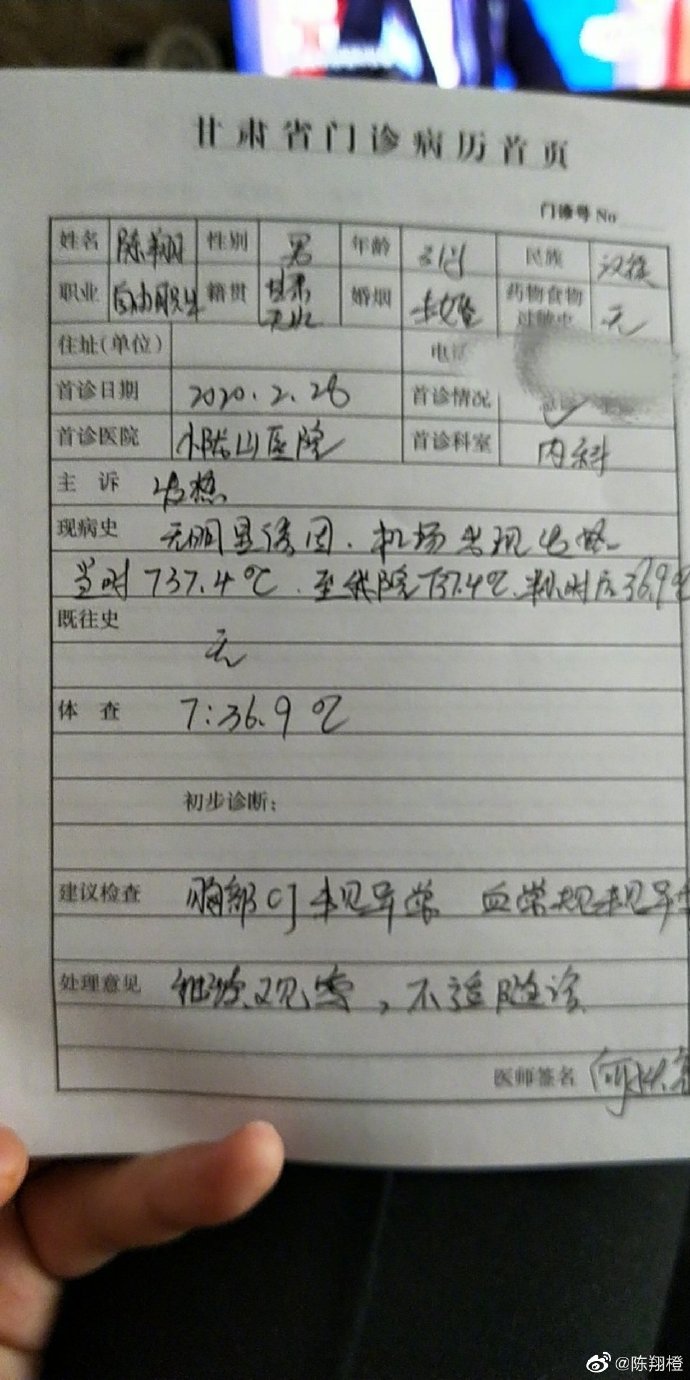 甘肃省门诊病历首页
门诊号 No
姓名 陈翔 性别 男 年龄 31岁 民族 汉族
职业 自由职业 籍贯 甘肃天水 婚姻 未婚 药物食物过敏史 无
住址(单位) 电话
首诊日期 2020.2.28 首诊情况
首诊医院 小陇山医院 首诊科室 内科
主 诉 发热
现病史 无明显诱因.机场发现发热
当时T37.4℃.至我院T37.4℃.半小时后36.9℃
既往史
无
体 查 T:36.9℃
初步诊断:
建议检查 胸部CT未见异常 血常规未见异常
处理意见 继续观察,不适随诊
医师签名
@陈翔橙